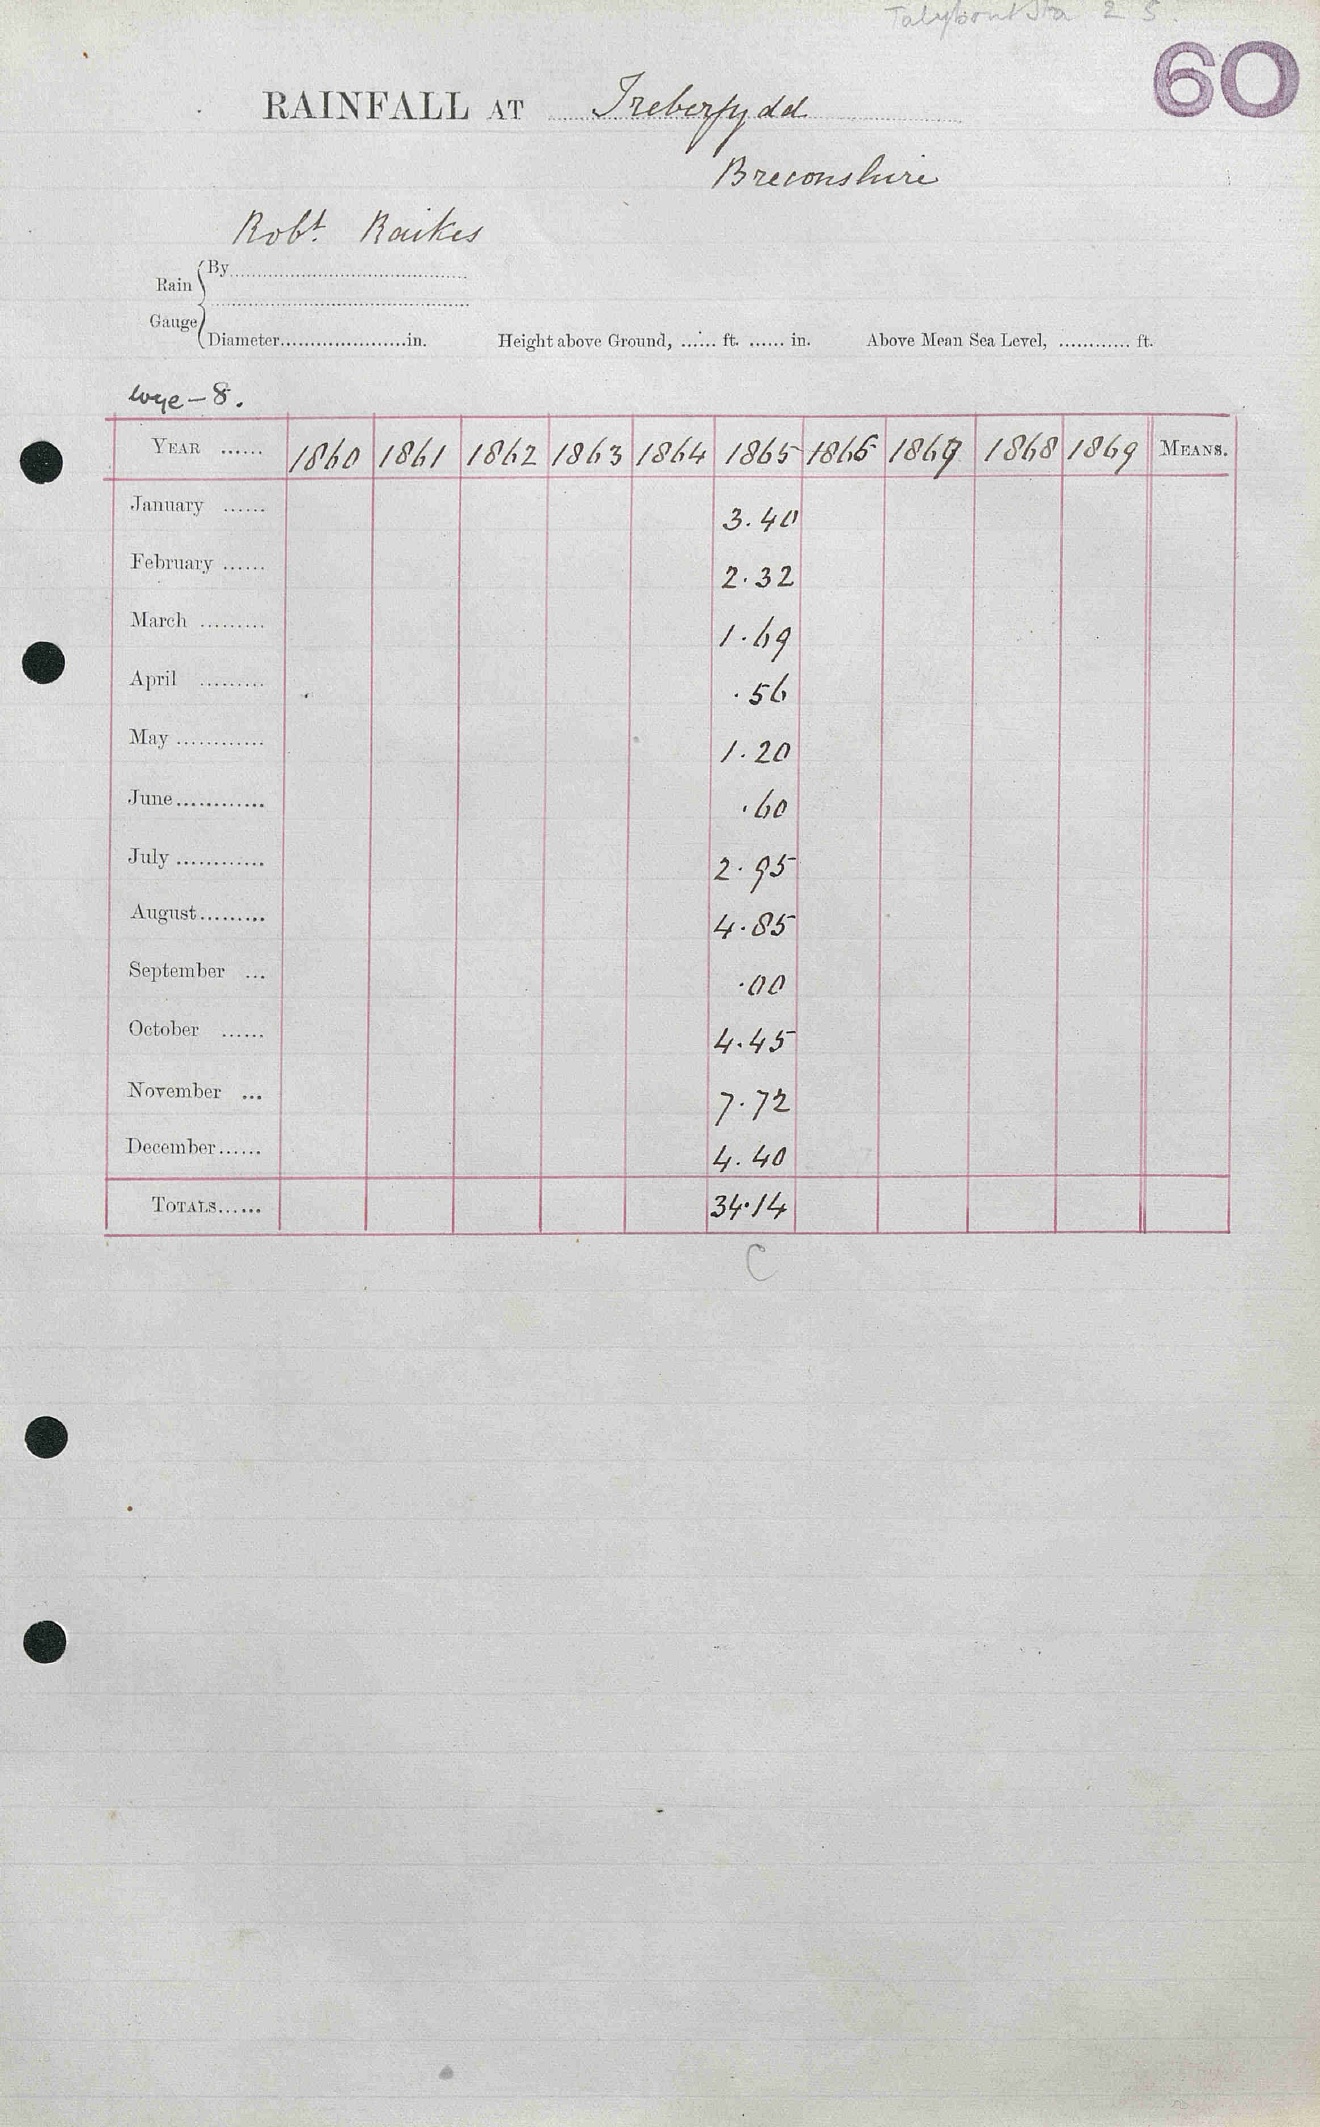 Talybont Sta 2 S.
60
RAINFALL AT Treberfydd
Breconshire
Robt. Raikes
Rain Gauge
By
Diameter in. Height above Ground, ft. in. Above Mean Sea Level, ft.
Wye - 8.
YEAR 1860 1861 1862 1863 1864 1865 1866 1867 1868 1869 MEANS.
January 3.40
February 2.32
March 1.69
April .56
May 1.20
June .60
July 2.95
August 4.85
September .00
October 4.45
November 7.72
December 4.40
TOTALS 34.14
C